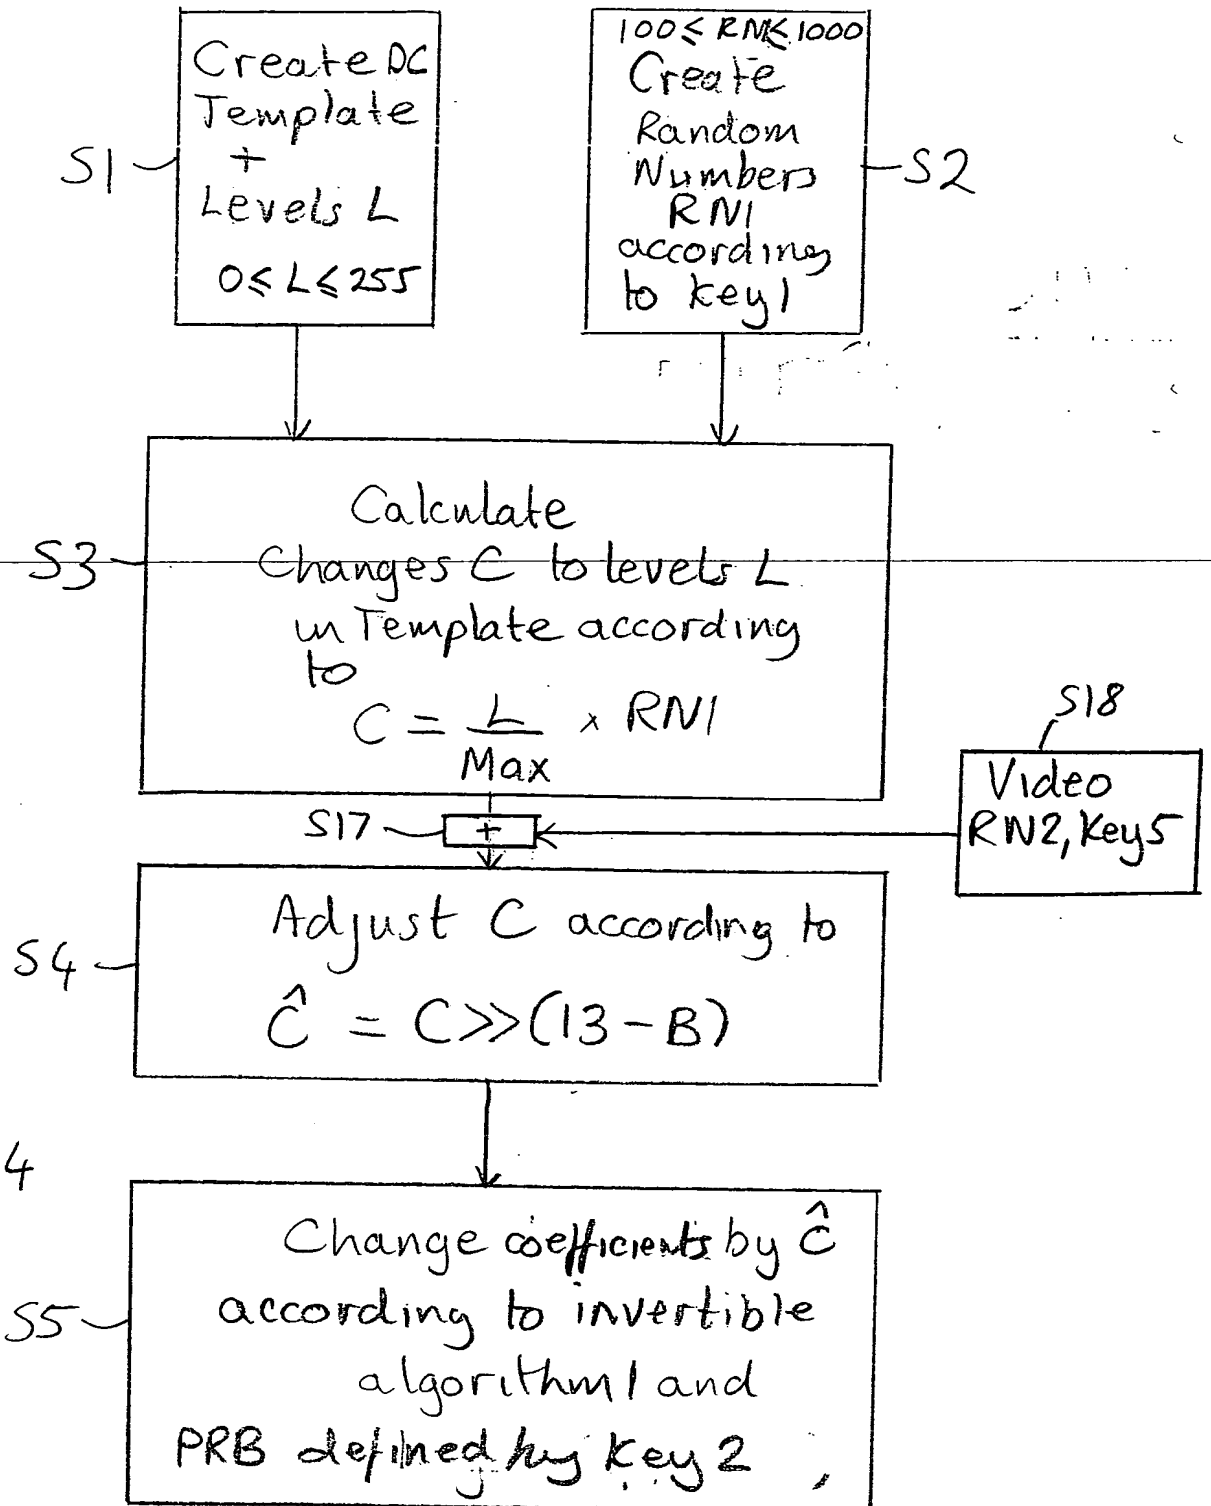 Create DC
Template
+
Levels L
0 ≤ L ≤ 255
S1
100 ≤ RN ≤ 1000
Create
Random
Numbers
RN1
according
to key1
S2
Calculate
Changes C to levels L
in Template according
to
C = L / Max × RN1
S3
S17
+
S18
Video
RN2, Key5
Adjust C according to
Ĉ = C >> (13 - B)
S4
4
Change coefficients by Ĉ
according to invertible
algorithm1 and
PRB defined by Key2
S5